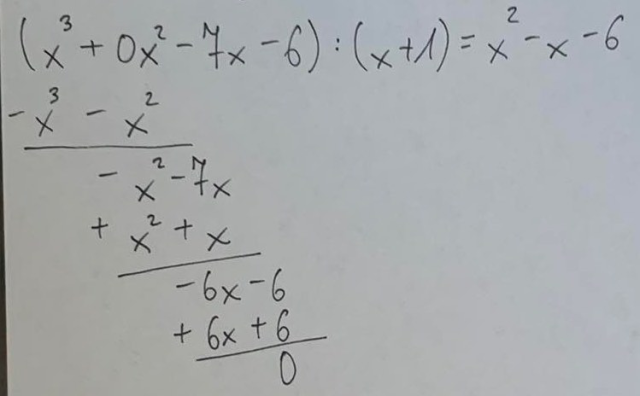 (x³ + 0x² - 7x - 6) : (x+1) = x² - x - 6
- x³ - x²
- x² - 7x
+ x² + x
- 6x - 6
+ 6x + 6
0